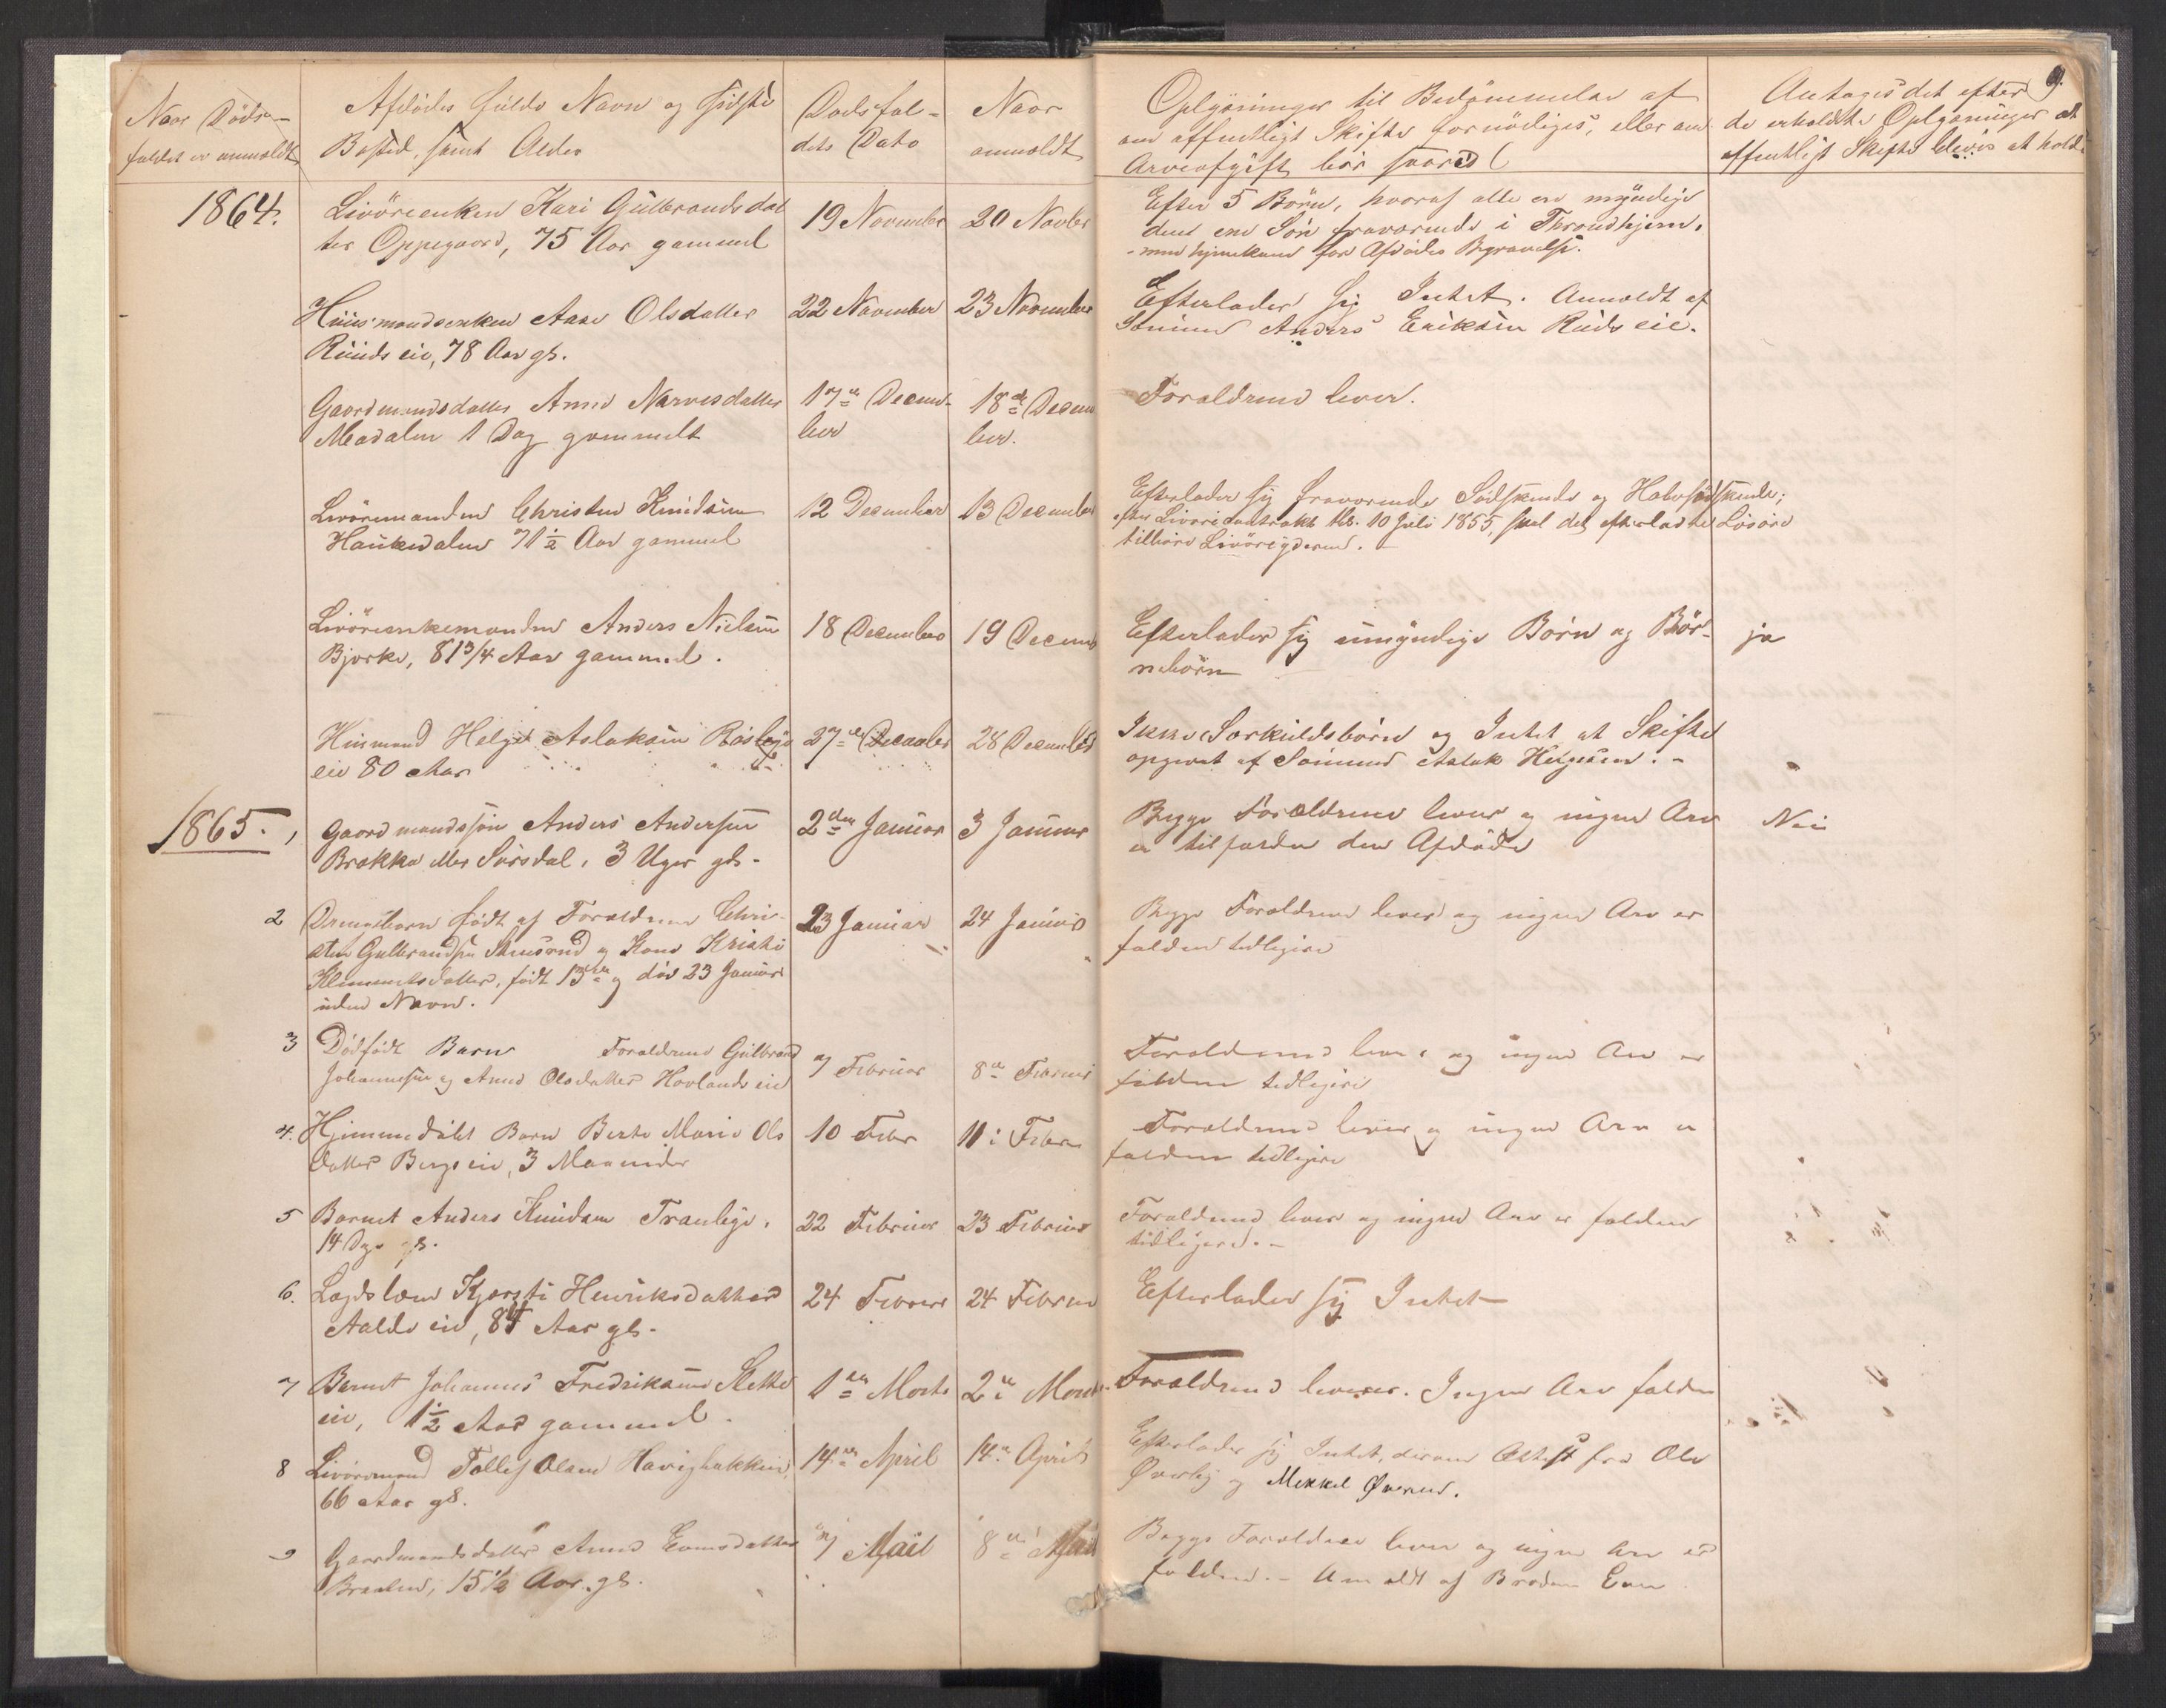 Naar Døds-
faldet er anmeldt
Afdødes fulde Navn og sidste
Bosted, samt Alder
Dødsfal-
dets Dato
Naar
anmeldt
Oplysninger til Bedømmelse af
om offentligt Skifte fornødiges, eller om
Arveafgift bør svares
Antages det efter
de erholdte Oplysninger at
offentligt Skifte bliver at holde
9.
1864.
Livøreenken Kari Gulbrandsdat
ter Oppegaard, 75 Aar gammel
19 November
20 Novber
Efter 5 Børn, hvoraf alle ere myndige
den ene Søn fraværende i Throndhjem.
for Afdødes Begravelse.
Huusmandsenken Aase Olsdatter
Ruudseie, 78 Aar gl.
22 November
23 November
Efterlader sig Intet. Anmeldt af
Sønnen Anders Eriksen Rudseie.
Gaardmandsdatter Anne Narvesdatter
Medalen 1 Dag gammelt
17de Decem-
ber
18de Decem
ber.
Forældrene lever.
Livøremanden Christen Knudsen
Haukedalen 71½ Aar gammel
12 December
13 December
Efterlader sig fraværende Sødskende og Halvsødskende;
efter Livørecontrakt thl. 10 Juli 1855, skal det efterladte Løsøre
tilhøre Livøreyderen.
Livøreenkemanden Anders Nielsen
Bjørke, 81 3/4 Aar gammel.
18 December
19 Decemb
Efterlader sig umyndige Børn og Bør-
nebørn
ja
Husmand Helge Aslaksen
eie 80 Aar
27de Decmber
28 December
Ikke Særkuldsbørn og Intet at Skifte
opgivet af Sønnen Aslak Helgesen. -
1865.
1
Gaardmandssøn Anders Andersen
Brekke eller Sørsdal, 3 Uger gl.
2den Januar
3 Januar
Begge Forældrene lever og ingen Arv
er tilfalden den Afdøde
Nei
2
Drengebarn født af Forældrene Chri-
sten Gulbrandsen Stensrud og Kone Kristi
Klemmetsdatter, født 13de og død 23 Januar
uden Navn.
23 Januar
24 Januar
Begge Forældrene lever og ingen Arv er
falden tidligere
3
Dødfødt Barn Forældrene Gulbrand
Johannesen og Anne Olsdatter Hovlandseie
7 Februar
8de Februar
Forældrene lever og ingen Arv er
falden tidligere
4.
Hjemmedøbt Barn Berte Marie Ols
datter Bergseie, 3 Maaneder
10 Febr
11 Febr
Forældrene lever og ingen Arv er
falden tidligere
5
Barnet Anders Knudsen Tranlege.
14 Dge gl.
22 Februar
23 Februar
Forældrene lever og ingen Arv er falden
tidligere. -
6.
Lægdslem Kjersti Henriksdatter
Aaldseie, 84 Aar gl.
24 Februar
24 Februar
Efterlader sig Intet
7
Barnet Johannes Fredriksen Slette
eie, 1½ Aar gammel.
1ste Marts
2de Marts
Forældrene lever. Ingen Arv falden
8
Livøremand Tollef Olsen
66 Aar gl.
14de April
14de April
Efterlader sig Intet, derom Attest fra Ole
Øverby og Mekkel Øverud.
9
Gaardmandsdatter Anne Evensdatter
15½ Aar gl.
7 Mai
8de Mai
Begge Forældre lever og ingen Arv er
falden. - Anmeldt af Broderen Even